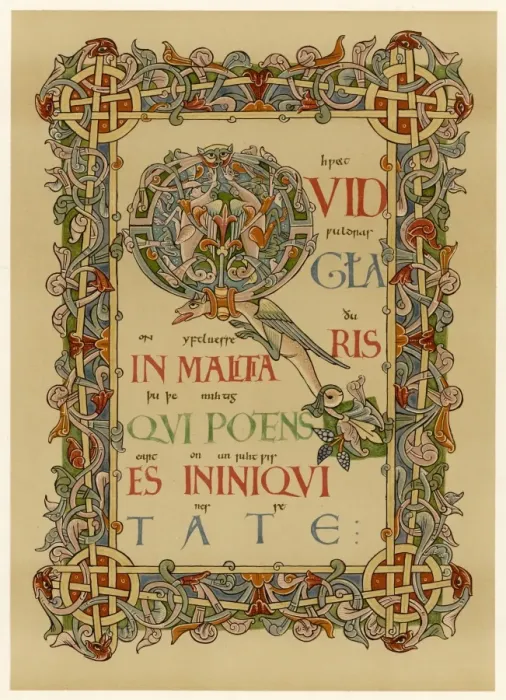 hƿæt
QVID
ƿuldras
GLA
ðu
RIS
on yfelnesse
IN MALITIA
þu þe mihtig
QVI POTENS
eart on un rihtƿis
ES IN INIQVI
nes se
TATE: